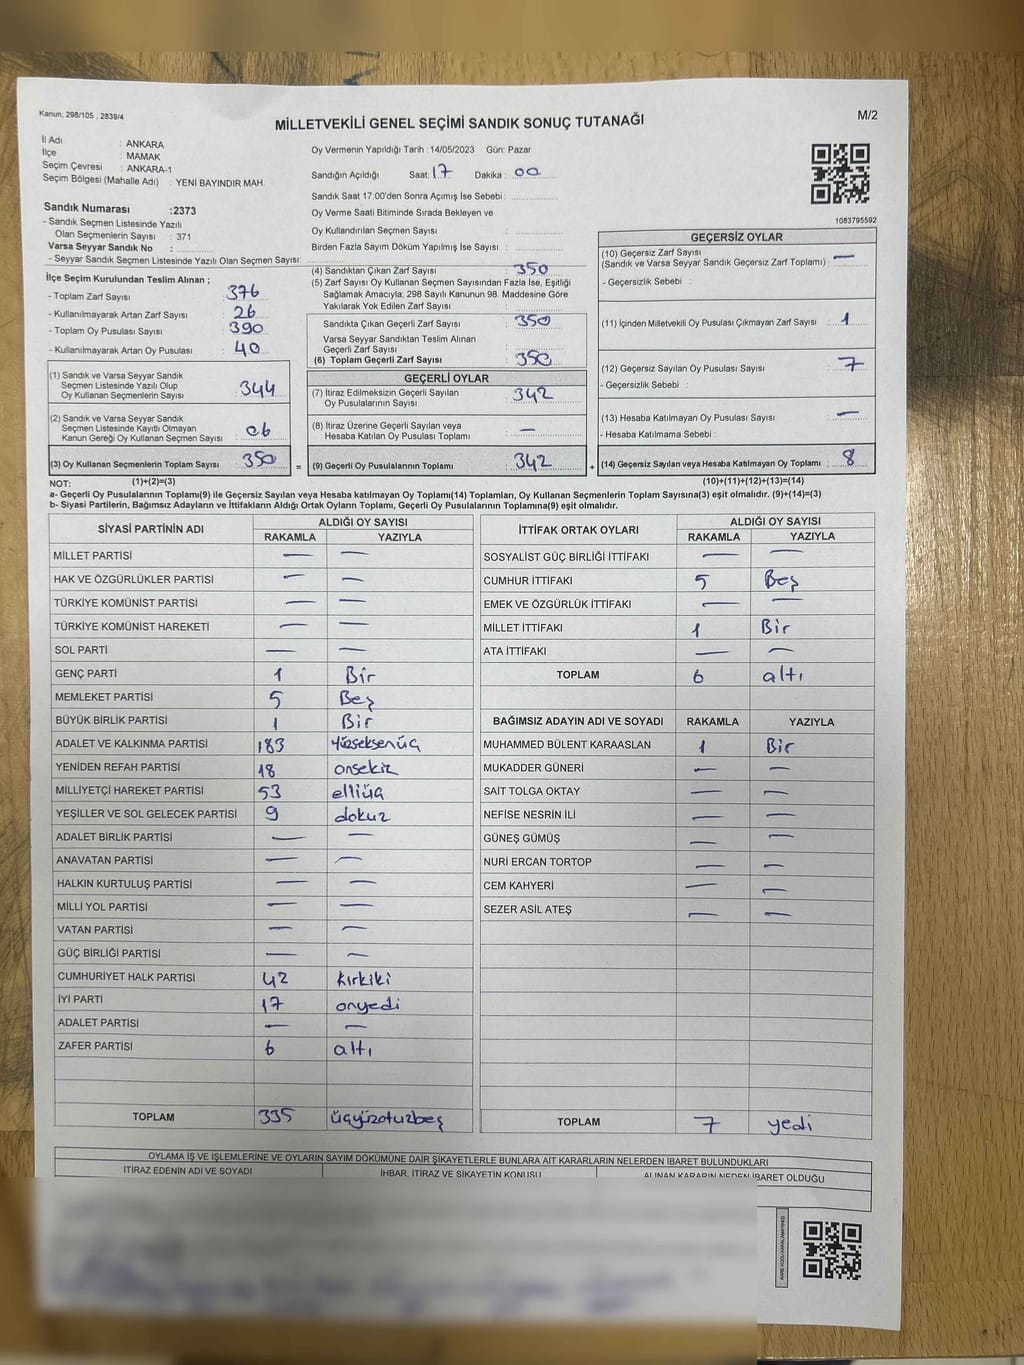 Kanun, 298/105 , 2839/4
MİLLETVEKİLİ GENEL SEÇİMİ SANDIK SONUÇ TUTANAĞI
M/2
İl Adı : ANKARA
İlçe : MAMAK
Seçim Çevresi : ANKARA-1
Seçim Bölgesi (Mahalle Adı) : YENİ BAYINDIR MAH.
Sandık Numarası :2373
- Sandık Seçmen Listesinde Yazılı
Olan Seçmenlerin Sayısı : 371
Varsa Seyyar Sandık No :
- Seyyar Sandık Seçmen Listesinde Yazılı Olan Seçmen Sayısı:
Oy Vermenin Yapıldığı Tarih : 14/05/2023 Gün: Pazar
Sandığın Açıldığı Saat: 17 Dakika : 00
Sandık Saat 17:00'den Sonra Açımış İse Sebebi :
Oy Verme Saati Bitiminde Sırada Bekleyen ve
Oy Kullandırılan Seçmen Sayısı :
Birden Fazla Sayım Döküm Yapılmış İse Sayısı :
1083795592
İlçe Seçim Kurulundan Teslim Alınan ;
- Toplam Zarf Sayısı : 376
- Kullanılmayarak Artan Zarf Sayısı : 26
- Toplam Oy Pusulası Sayısı : 390
- Kullanılmayarak Artan Oy Pusulası : 40
(1) Sandık ve Varsa Seyyar Sandık
Seçmen Listesinde Yazılı Olup
Oy Kullanan Seçmenlerin Sayısı : 344
(2) Sandık ve Varsa Seyyar Sandık
Seçmen Listesinde Kayıtlı Olmayan
Kanun Gereği Oy Kullanan Seçmen Sayısı : 06
(3) Oy Kullanan Seçmenlerin Toplam Sayısı : 350
(4) Sandıktan Çıkan Zarf Sayısı : 350
(5) Zarf Sayısı Oy Kullanan Seçmen Sayısından Fazla İse, Eşitliği
Sağlamak Amacıyla; 298 Sayılı Kanunun 98. Maddesine Göre
Yakılarak Yok Edilen Zarf Sayısı :
Sandıkta Çıkan Geçerli Zarf Sayısı : 350
Varsa Seyyar Sandıktan Teslim Alınan
Geçerli Zarf Sayısı :
(6) Toplam Geçerli Zarf Sayısı : 350
GEÇERLİ OYLAR
(7) İtiraz Edilmeksizin Geçerli Sayılan
Oy Pusulalarının Sayısı : 342
(8) İtiraz Üzerine Geçerli Sayılan veya
Hesaba Katılan Oy Pusulası Toplamı : —
= (9) Geçerli Oy Pusulalarının Toplamı : 342
GEÇERSİZ OYLAR
(10) Geçersiz Zarf Sayısı
(Sandık ve Varsa Seyyar Sandık Geçersiz Zarf Toplamı) : —
- Geçersizlik Sebebi :
(11) İçinden Milletvekili Oy Pusulası Çıkmayan Zarf Sayısı : 1
(12) Geçersiz Sayılan Oy Pusulası Sayısı : 7
- Geçersizlik Sebebi :
(13) Hesaba Katılmayan Oy Pusulası Sayısı : —
- Hesaba Katılmama Sebebi :
+ (14) Geçersiz Sayılan veya Hesaba Katılmayan Oy Toplamı : 8
NOT: (1)+(2)=(3) (10)+(11)+(12)+(13)=(14)
a- Geçerli Oy Pusulalarının Toplamı(9) ile Geçersiz Sayılan veya Hesaba katılmayan Oy Toplamı(14) Toplamları, Oy Kullanan Seçmenlerin Toplam Sayısına(3) eşit olmalıdır. (9)+(14)=(3)
b- Siyasi Partilerin, Bağımsız Adayların ve İttifakların Aldığı Ortak Oyların Toplamı, Geçerli Oy Pusulalarının Toplamına(9) eşit olmalıdır.
SİYASİ PARTİNİN ADI ALDIĞI OY SAYISI
RAKAMLA YAZIYLA
MİLLET PARTİSİ — —
HAK VE ÖZGÜRLÜKLER PARTİSİ — —
TÜRKİYE KOMÜNİST PARTİSİ — —
TÜRKİYE KOMÜNİST HAREKETİ — —
SOL PARTİ — —
GENÇ PARTİ 1 Bir
MEMLEKET PARTİSİ 5 Beş
BÜYÜK BİRLİK PARTİSİ 1 Bir
ADALET VE KALKINMA PARTİSİ 183 Yüzseksenüç
YENİDEN REFAH PARTİSİ 18 onsekiz
MİLLİYETÇİ HAREKET PARTİSİ 53 elliüç
YEŞİLLER VE SOL GELECEK PARTİSİ 9 dokuz
ADALET BİRLİK PARTİSİ — —
ANAVATAN PARTİSİ — —
HALKIN KURTULUŞ PARTİSİ — —
MİLLİ YOL PARTİSİ — —
VATAN PARTİSİ — —
GÜÇ BİRLİĞİ PARTİSİ — —
CUMHURİYET HALK PARTİSİ 42 kırkiki
İYİ PARTİ 17 onyedi
ADALET PARTİSİ — —
ZAFER PARTİSİ 6 altı
TOPLAM 335 üçyüzotuzbeş
İTTİFAK ORTAK OYLARI ALDIĞI OY SAYISI
RAKAMLA YAZIYLA
SOSYALİST GÜÇ BİRLİĞİ İTTİFAKI — —
CUMHUR İTTİFAKI 5 Beş
EMEK VE ÖZGÜRLÜK İTTİFAKI — —
MİLLET İTTİFAKI 1 Bir
ATA İTTİFAKI — —
TOPLAM 6 altı
BAĞIMSIZ ADAYIN ADI VE SOYADI RAKAMLA YAZIYLA
MUHAMMED BÜLENT KARAASLAN 1 Bir
MUKADDER GÜNERİ — —
SAİT TOLGA OKTAY — —
NEFİSE NESRİN İLİ — —
GÜNEŞ GÜMÜŞ — —
NURİ ERCAN TORTOP — —
CEM KAHYERİ — —
SEZER ASİL ATEŞ — —
TOPLAM 7 yedi
OYLAMA İŞ VE İŞLEMLERİNE VE OYLARIN SAYIM DÖKÜMÜNE DAİR ŞİKAYETLERLE BUNLARA AİT KARARLARIN NELERDEN İBARET BULUNDUKLARI
İTİRAZ EDENİN ADI VE SOYADI İHBAR, İTİRAZ VE ŞİKAYETİN KONUSU ALINAN KARARIN NEDEN İBARET OLDUĞU